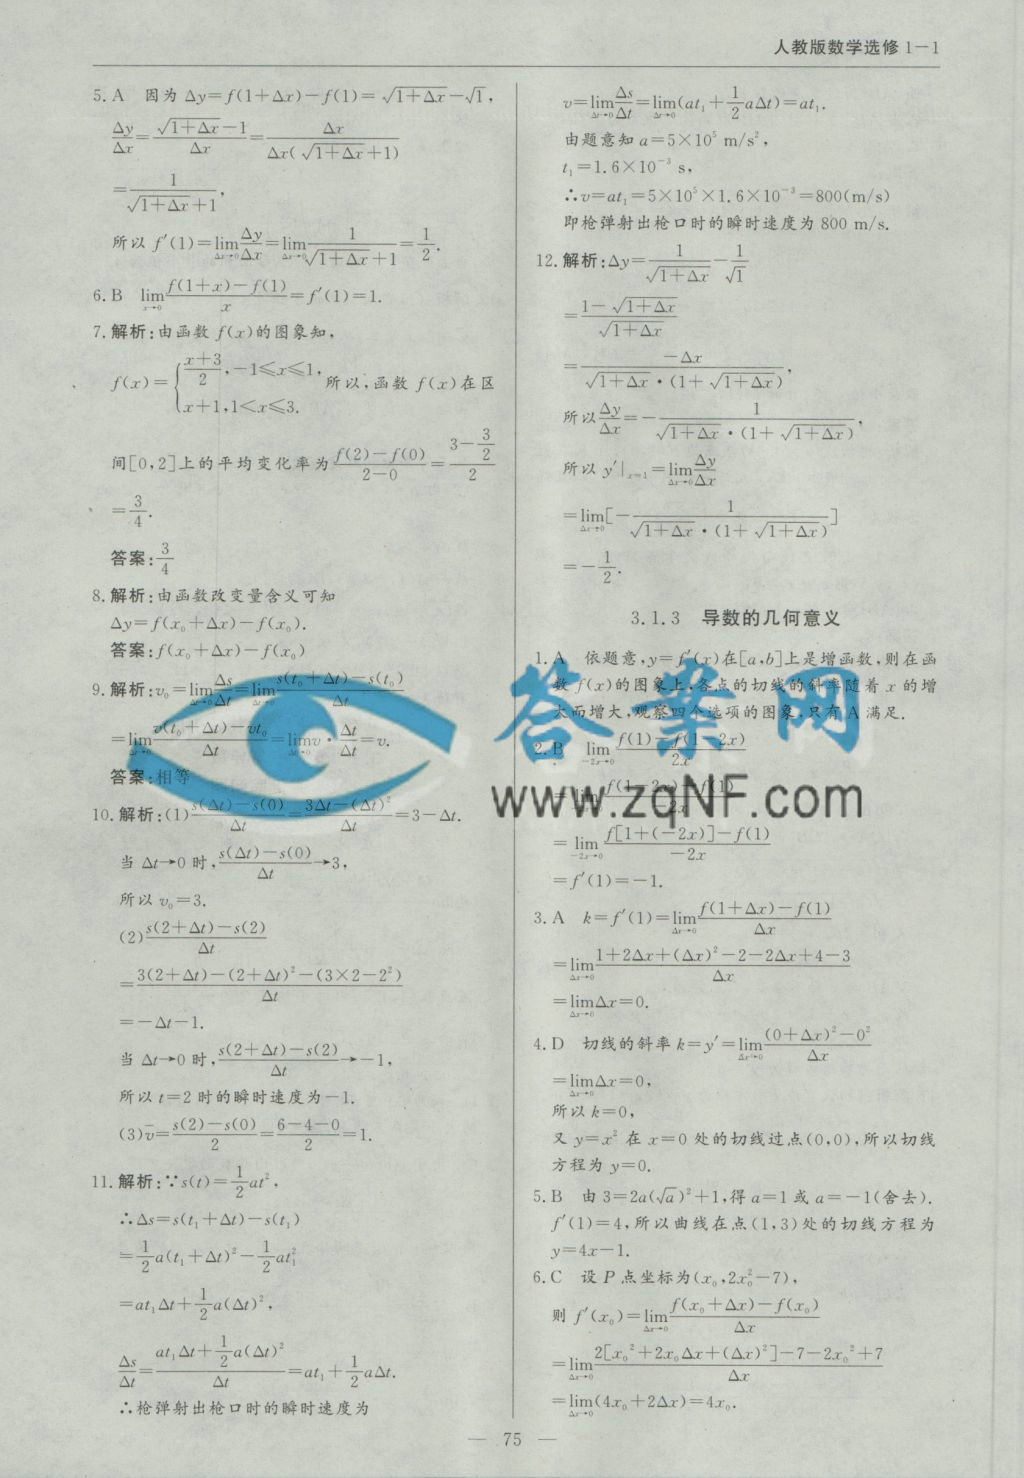 人教版数学选修1-1
5. A 因为 Δy=f(1+Δx)-f(1)=√(1+Δx)-√1,
Δy/Δx=(√(1+Δx)-1)/Δx=Δx/(Δx(√(1+Δx)+1))
=1/(√(1+Δx)+1),
所以 f′(1)=lim(Δx→0) Δy/Δx=lim(Δx→0) 1/(√(1+Δx)+1)=1/2.
6. B lim(x→0) (f(1+x)-f(1))/x=f′(1)=1.
7. 解析:由函数 f(x)的图象知,
f(x)={(x+3)/2,-1≤x≤1, x+1,1<x≤3. 所以,函数 f(x)在区
间[0,2]上的平均变化率为(f(2)-f(0))/(2-0)=(3-3/2)/2
=3/4.
答案:3/4
8. 解析:由函数改变量含义可知
Δy=f(x₀+Δx)-f(x₀).
答案:f(x₀+Δx)-f(x₀)
9. 解析:v₀=lim(Δt→0) Δs/Δt=lim(Δt→0) (s(t₀+Δt)-s(t₀))/Δt
=lim(Δt→0) (v(t₀+Δt)-vt₀)/Δt=lim(Δt→0) v·Δt/Δt=v.
答案:相等
10. 解析:(1)(s(Δt)-s(0))/Δt=(3Δt-(Δt)²)/Δt=3-Δt.
当 Δt→0 时,(s(Δt)-s(0))/Δt→3,
所以 v₀=3.
(2)(s(2+Δt)-s(2))/Δt
=(3(2+Δt)-(2+Δt)²-(3×2-2²))/Δt
=-Δt-1.
当 Δt→0 时,(s(2+Δt)-s(2))/Δt→-1,
所以 t=2 时的瞬时速度为-1.
(3)v̄=(s(2)-s(0))/2=(6-4-0)/2=1.
11. 解析:∵s(t)=1/2at²,
∴Δs=s(t₁+Δt)-s(t₁)
=1/2a(t₁+Δt)²-1/2at₁²
=at₁Δt+1/2a(Δt)²,
Δs/Δt=(at₁Δt+1/2a(Δt)²)/Δt=at₁+1/2aΔt.
∴枪弹射出枪口时的瞬时速度为
v=lim(Δt→0) Δs/Δt=lim(Δt→0)(at₁+1/2aΔt)=at₁.
由题意知 a=5×10⁵ m/s²,
t₁=1.6×10⁻³ s,
∴v=at₁=5×10⁵×1.6×10⁻³=800(m/s)
即枪弹射出枪口时的瞬时速度为 800 m/s.
12. 解析:Δy=1/√(1+Δx)-1/√1
=(1-√(1+Δx))/√(1+Δx)
=-Δx/(√(1+Δx)·(1+√(1+Δx))),
所以Δy/Δx=-1/(√(1+Δx)·(1+√(1+Δx))),
所以 y′|x=1=lim(Δx→0) Δy/Δx
=lim(Δx→0)[-1/(√(1+Δx)·(1+√(1+Δx)))]
=-1/2.
3.1.3 导数的几何意义
1. A 依题意,y=f′(x)在[a,b]上是增函数,则在函
数 f(x)的图象上,各点的切线的斜率随着 x 的增
大而增大,观察四个选项的图象,只有 A 满足.
2. B lim(-2x→0) (f(1)-f(1-2x))/2x
=lim(-2x→0) (f(1-2x)-f(1))/-2x
=lim(-2x→0) (f[1+(-2x)]-f(1))/-2x
=f′(1)=-1.
3. A k=f′(1)=lim(Δx→0) (f(1+Δx)-f(1))/Δx
=lim(Δx→0) (1+2Δx+(Δx)²-2-2Δx+4-3)/Δx
=lim(Δx→0)Δx=0.
4. D 切线的斜率 k=y′=lim(Δx→0) ((0+Δx)²-0²)/Δx
=lim(Δx→0)Δx=0,
所以 k=0,
又 y=x² 在 x=0 处的切线过点(0,0),所以切线
方程为 y=0.
5. B 由 3=2a(√a)²+1,得 a=1 或 a=-1(舍去).
f′(1)=4,所以曲线在点(1,3)处的切线方程为
y=4x-1.
6. C 设 P 点坐标为(x₀,2x₀²-7),
则 f′(x₀)=lim(Δx→0) (f(x₀+Δx)-f(x₀))/Δx
=lim(Δx→0) (2[x₀²+2x₀Δx+(Δx)²]-7-2x₀²+7)/Δx
=lim(Δx→0)(4x₀+2Δx)=4x₀.
答案网
www.zqNF.com
— 75 —